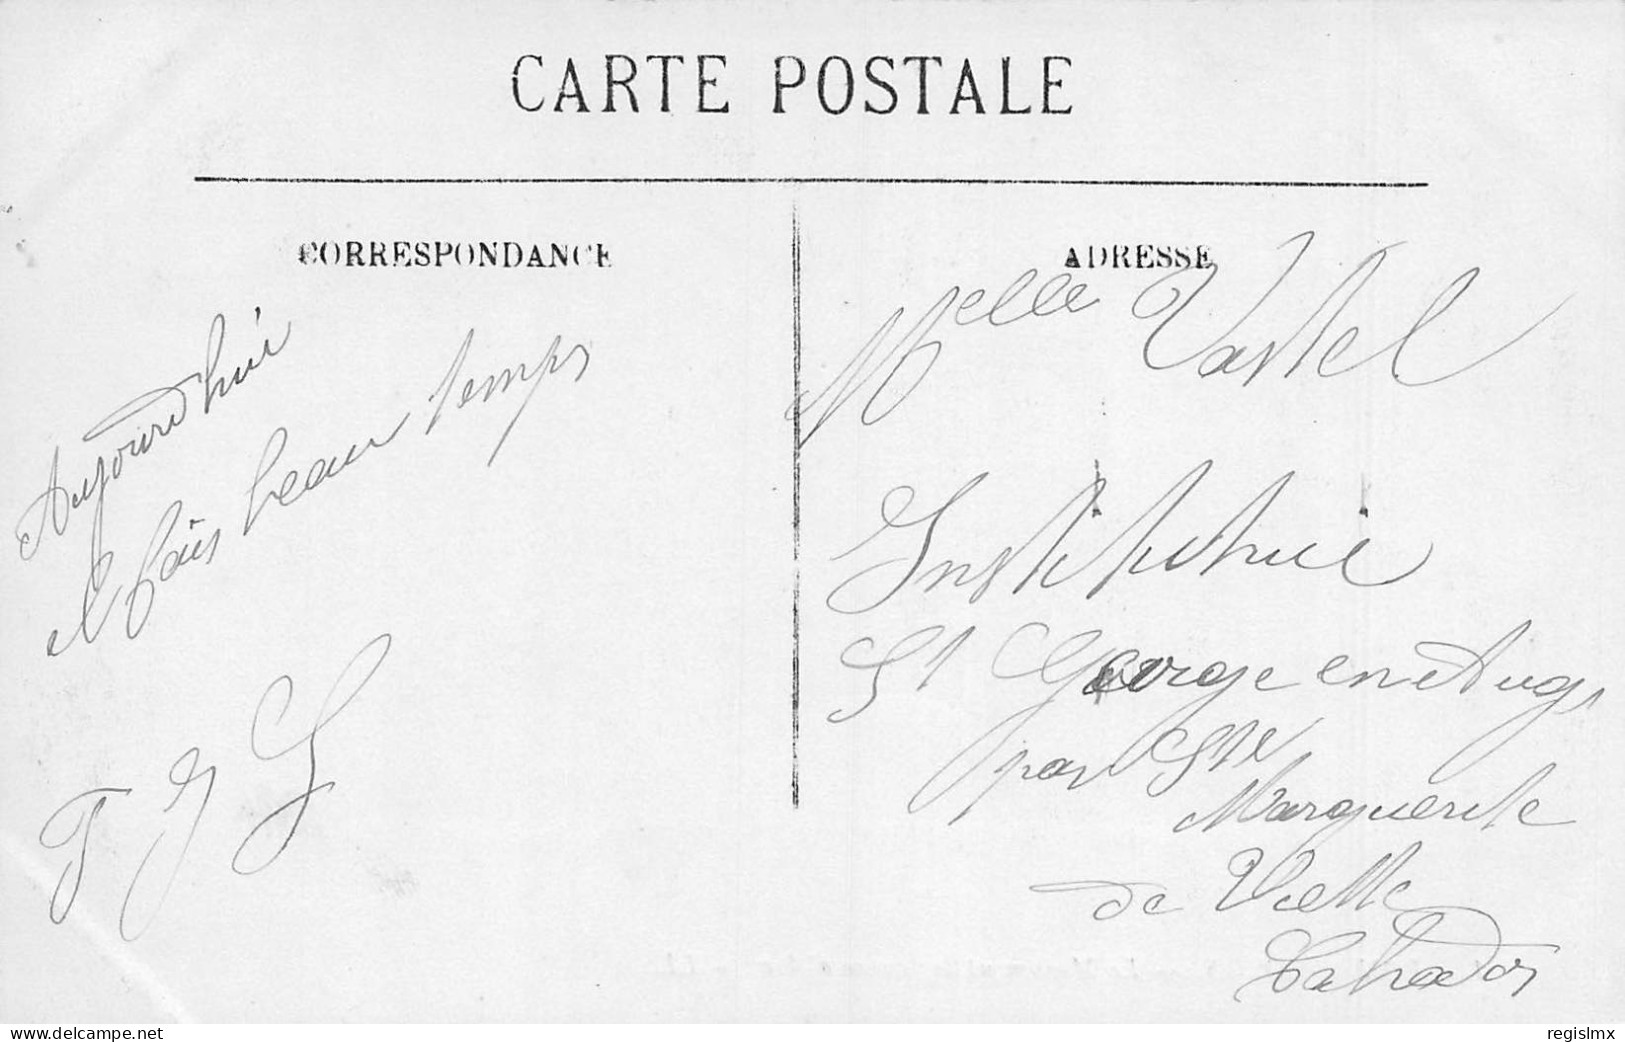 CARTE POSTALE
CORRESPONDANCE
Aujourd'hui
il fais beau temps
ADRESSE
Melle Vastel
Institutrice
St George en Auge
par Ste
Marguerite
de Viette
Calvados
www.delcampe.net
regislmx